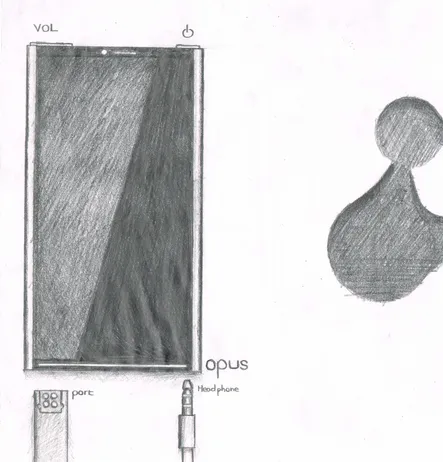 VOL
opus
port
Headphone